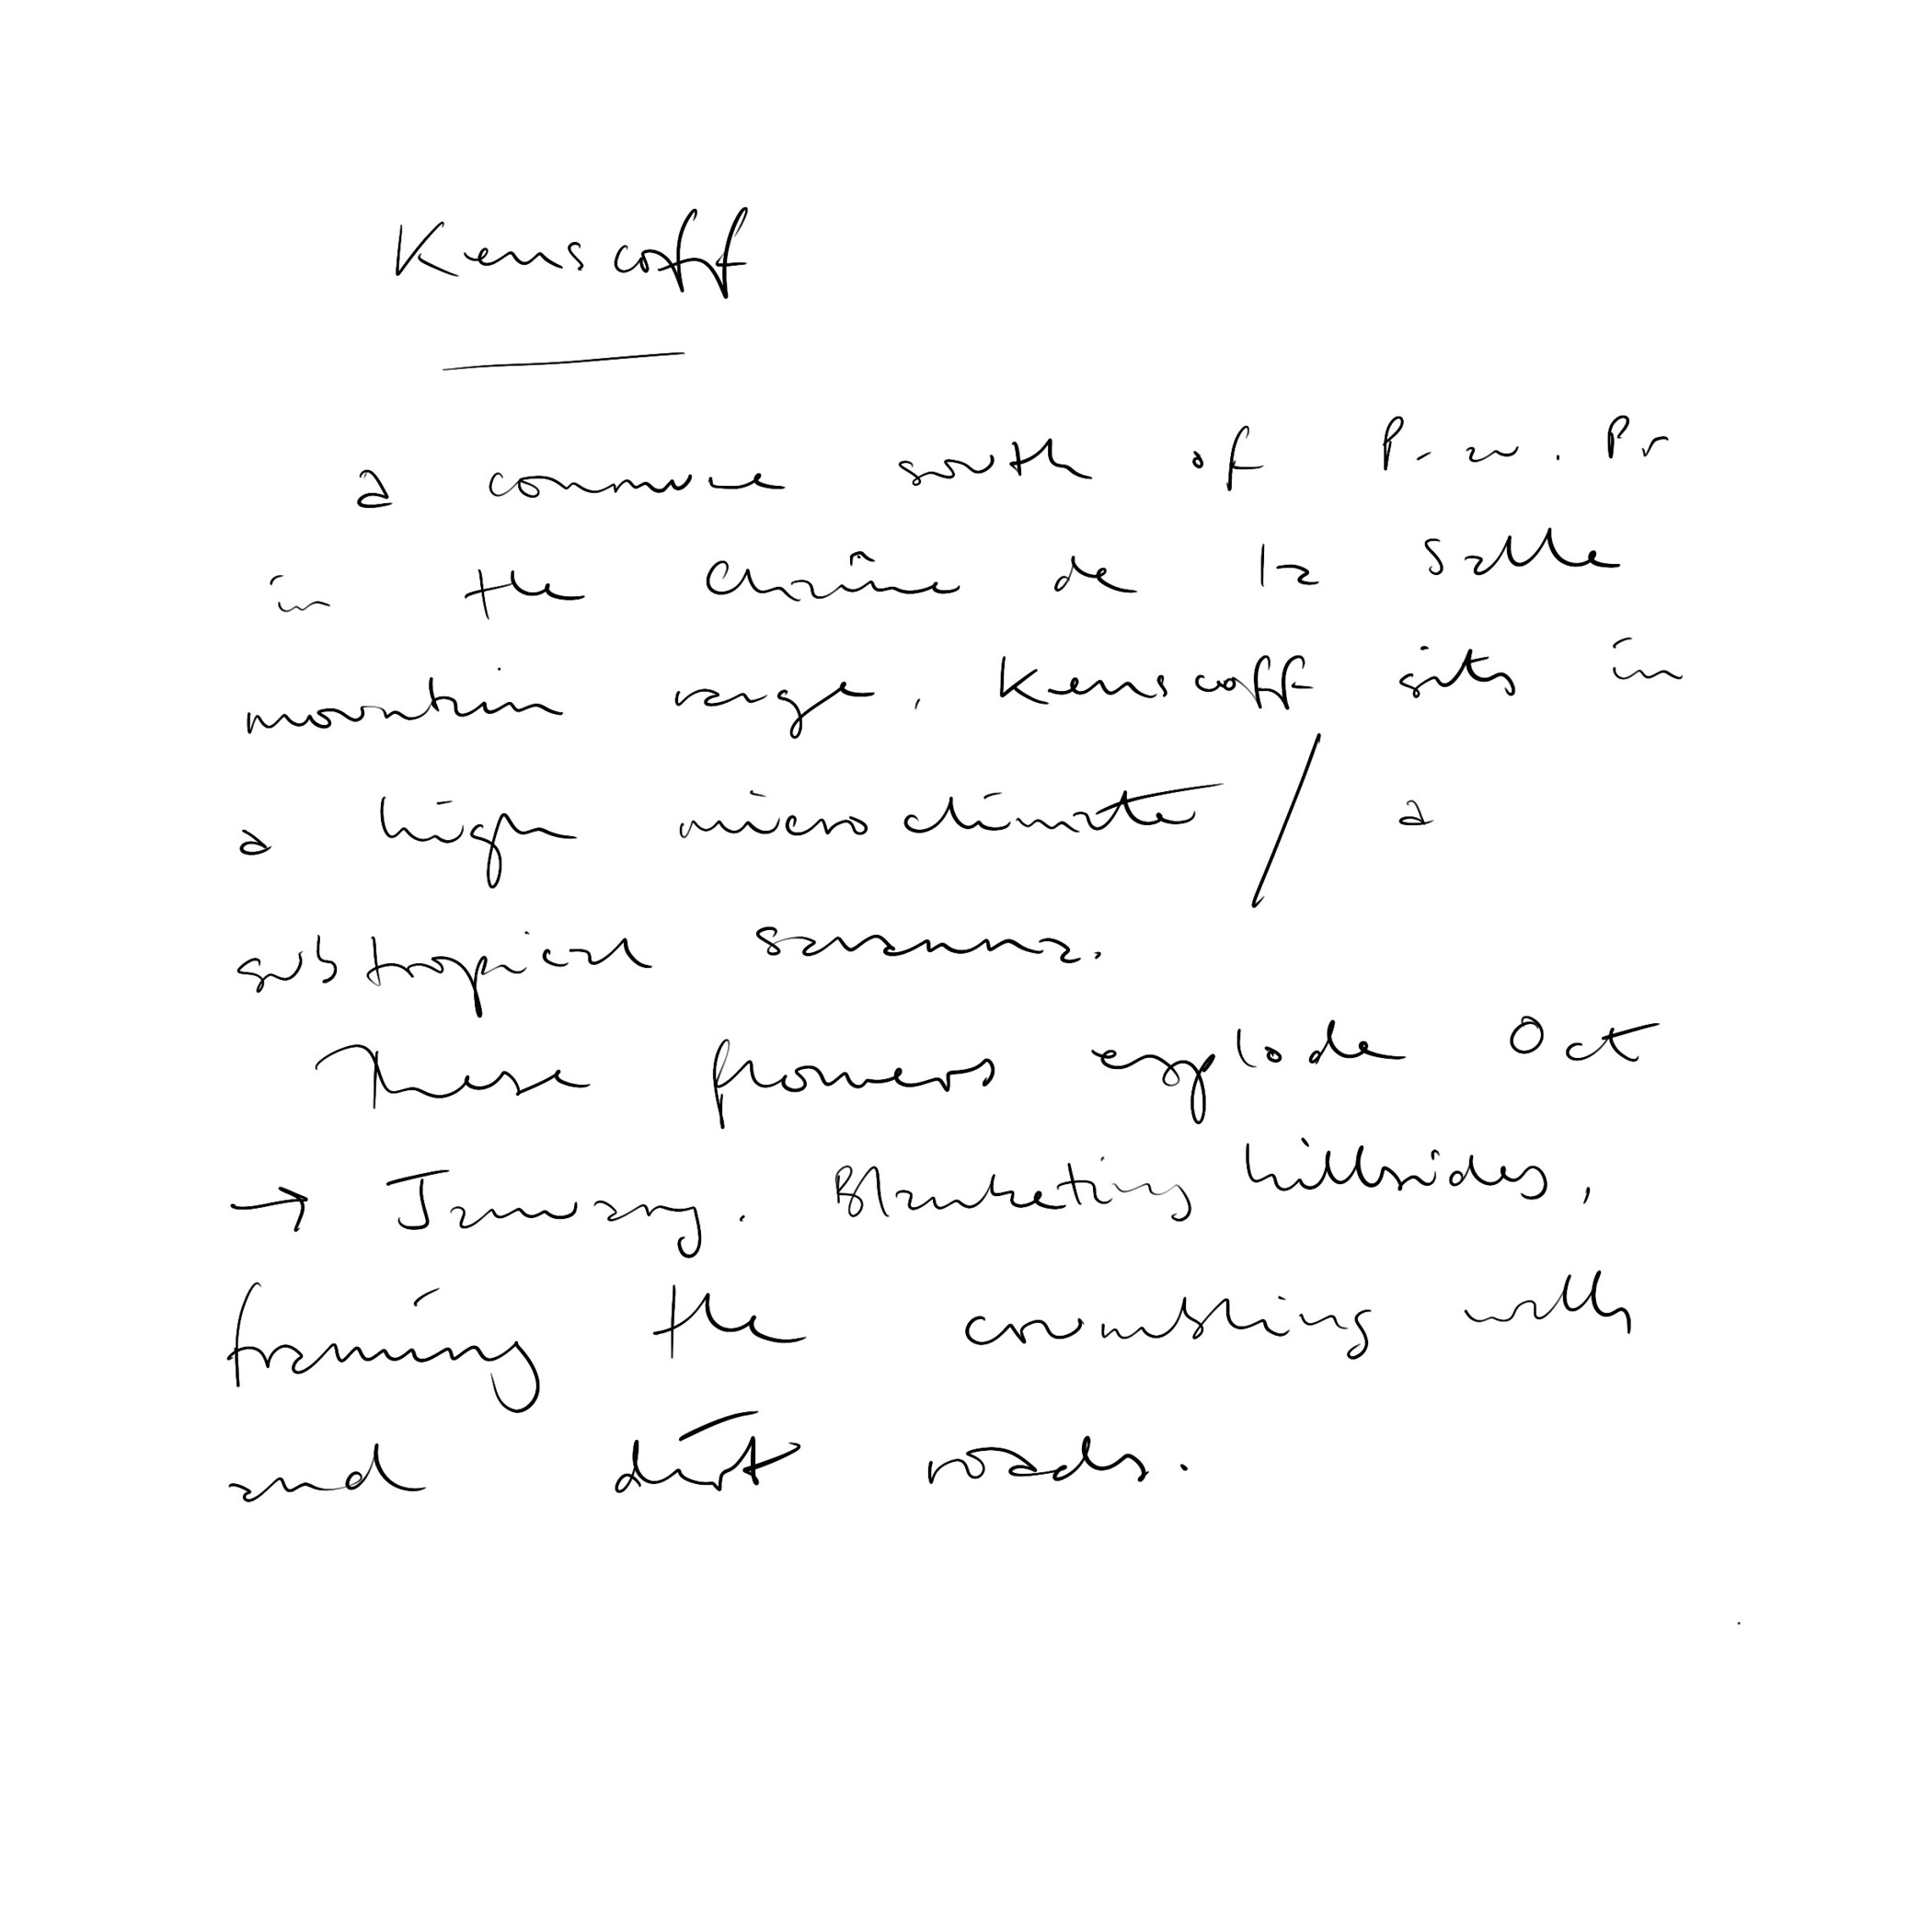 Kenscoff
a commune south of P-au-Pr
in the Chaîne de la Selle
mountain range. Kenscoff sits in
a high microclimate / a
subtropical savanna.
These flowers explode Oct
→ January. Blanketing hillsides,
framing the crumbling walls
and dirt roads.